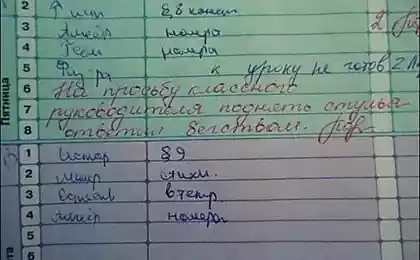 2 § 8 конспект
3 Алгебр номера 2
4 Геом номера
Пятница
5 Физ ра к уроку не готов 2
6 На просьбу классного
7 руководителя поднять стулья
8 ответил бегством.
1 Истор § 9
2 Литер стихи.
3 Естеств в тетр.
4 Алгебр номера
5
6